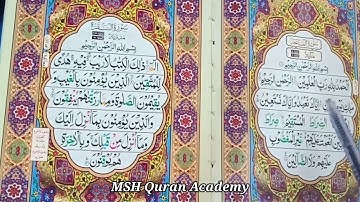 بِسْمِ اللهِ الرَّحْمٰنِ الرَّحِيْمِ
اَلْحَمْدُ لِلّٰهِ رَبِّ الْعٰلَمِيْنَ الرَّحْمٰنِ الرَّحِيْمِ
اِيَّاكَ نَعْبُدُ وَاِيَّاكَ نَسْتَعِيْنُ
الصِّرَاطَ صِرَاطَ
الَّذِيْنَ اَنْعَمْتَ عَلَيْهِمْ غَيْرِ الْمَغْضُوْبِ
عَلَيْهِمْ وَلَا الضَّآلِّيْنَ
سُوْرَةُ الْبَقَرَةِ
بِسْمِ اللهِ الرَّحْمٰنِ الرَّحِيْمِ
الٓمّٓ ذٰلِكَ الْكِتٰبُ لَا رَيْبَ فِيْهِ هُدًى
لِّلْمُتَّقِيْنَ الَّذِيْنَ يُؤْمِنُوْنَ بِالْغَيْبِ وَ
يُقِيْمُوْنَ الصَّلٰوةَ وَمِمَّا رَزَقْنٰهُمْ يُنْفِقُوْنَ
وَالَّذِيْنَ يُؤْمِنُوْنَ بِمَآ اُنْزِلَ اِلَيْكَ
وَمَآ اُنْزِلَ مِنْ قَبْلِكَ وَبِالْاٰخِرَةِ
هُمْ يُوْقِنُوْنَ
MSH Quran Academy